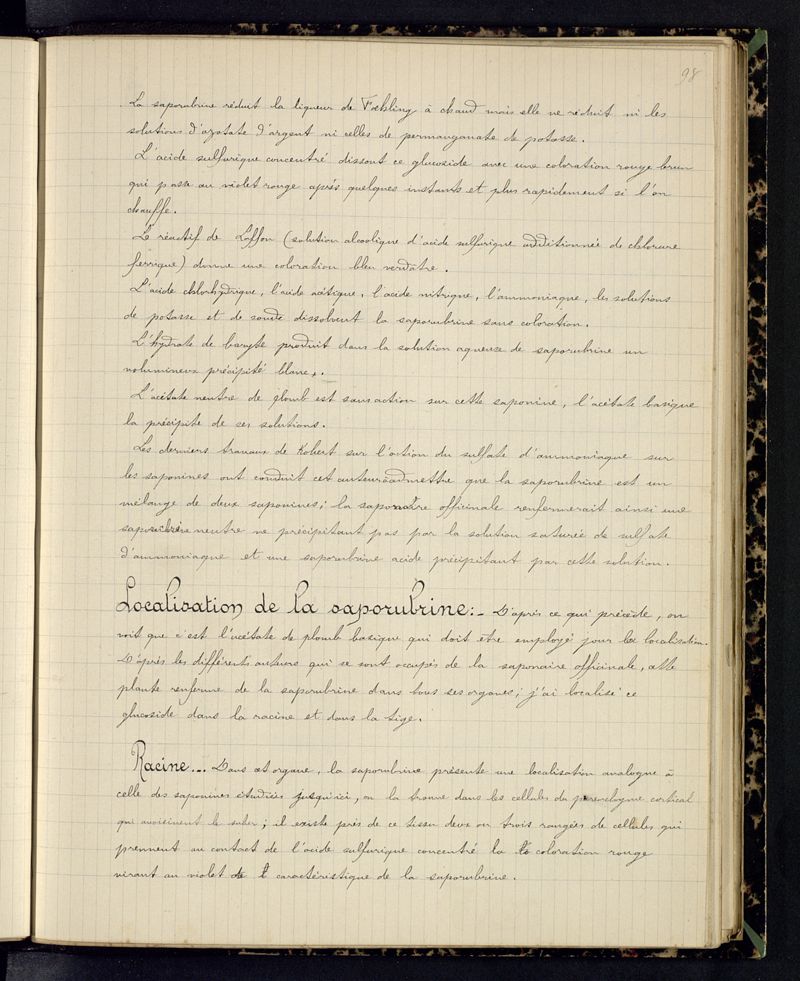 98
La saporubrine réduit la liqueur de Foehling à chaud mais elle ne réduit ni les
solutions d'azotate d'argent ni celles de permanganate de potasse.
L'acide sulfurique concentré dissout ce glucoside avec une coloration rouge brun
qui passe au violet rouge après quelques instants et plus rapidement si l'on
chauffe.
Le réactif de Laffon (solution alcoolique d'acide sulfurique additionnée de chlorure
ferrique) donne une coloration bleu verdâtre.
L'acide chlorhydrique, l'acide acétique, l'acide nitrique, l'ammoniaque, les solutions
de potasse et de soude dissolvent la saporubrine sans coloration.
L'hydrate de baryte produit dans la solution aqueuse de saporubrine un
volumineux précipité blanc.
L'acétate neutre de plomb est sans action sur cette saponine, l'acétate basique
la précipite de ses solutions.
Les derniers travaux de Kobert sur l'action du sulfate d'ammoniaque sur
les saponines ont conduit cet auteur à admettre que la saporubrine est un
mélange de deux saponines; la saponaire officinale renfermerait ainsi une
saporubrine neutre ne précipitant pas par la solution saturée de sulfate
d'ammoniaque et une saporubrine acide précipitant par cette solution.
Localisation de la saporubrine:- D'après ce qui précède, on
voit que c'est l'acétate de plomb basique qui doit être employé pour la localisation.
D'après les différents auteurs qui se sont occupés de la saponaire officinale, cette
plante renferme de la saporubrine dans tous ses organes; j'ai localisé ce
glucoside dans la racine et dans la tige.
Racine... Dans cet organe, la saporubrine présente une localisation analogue à
celle des saponines étudiées jusqu'ici, on la trouve dans les cellules du parenchyme cortical
qui avoisinent le suber; il existe près de ce tissu deux ou trois rangées de cellules qui
prennent au contact de l'acide sulfurique concentré la coloration rouge
virant au violet caractéristique de la saporubrine.